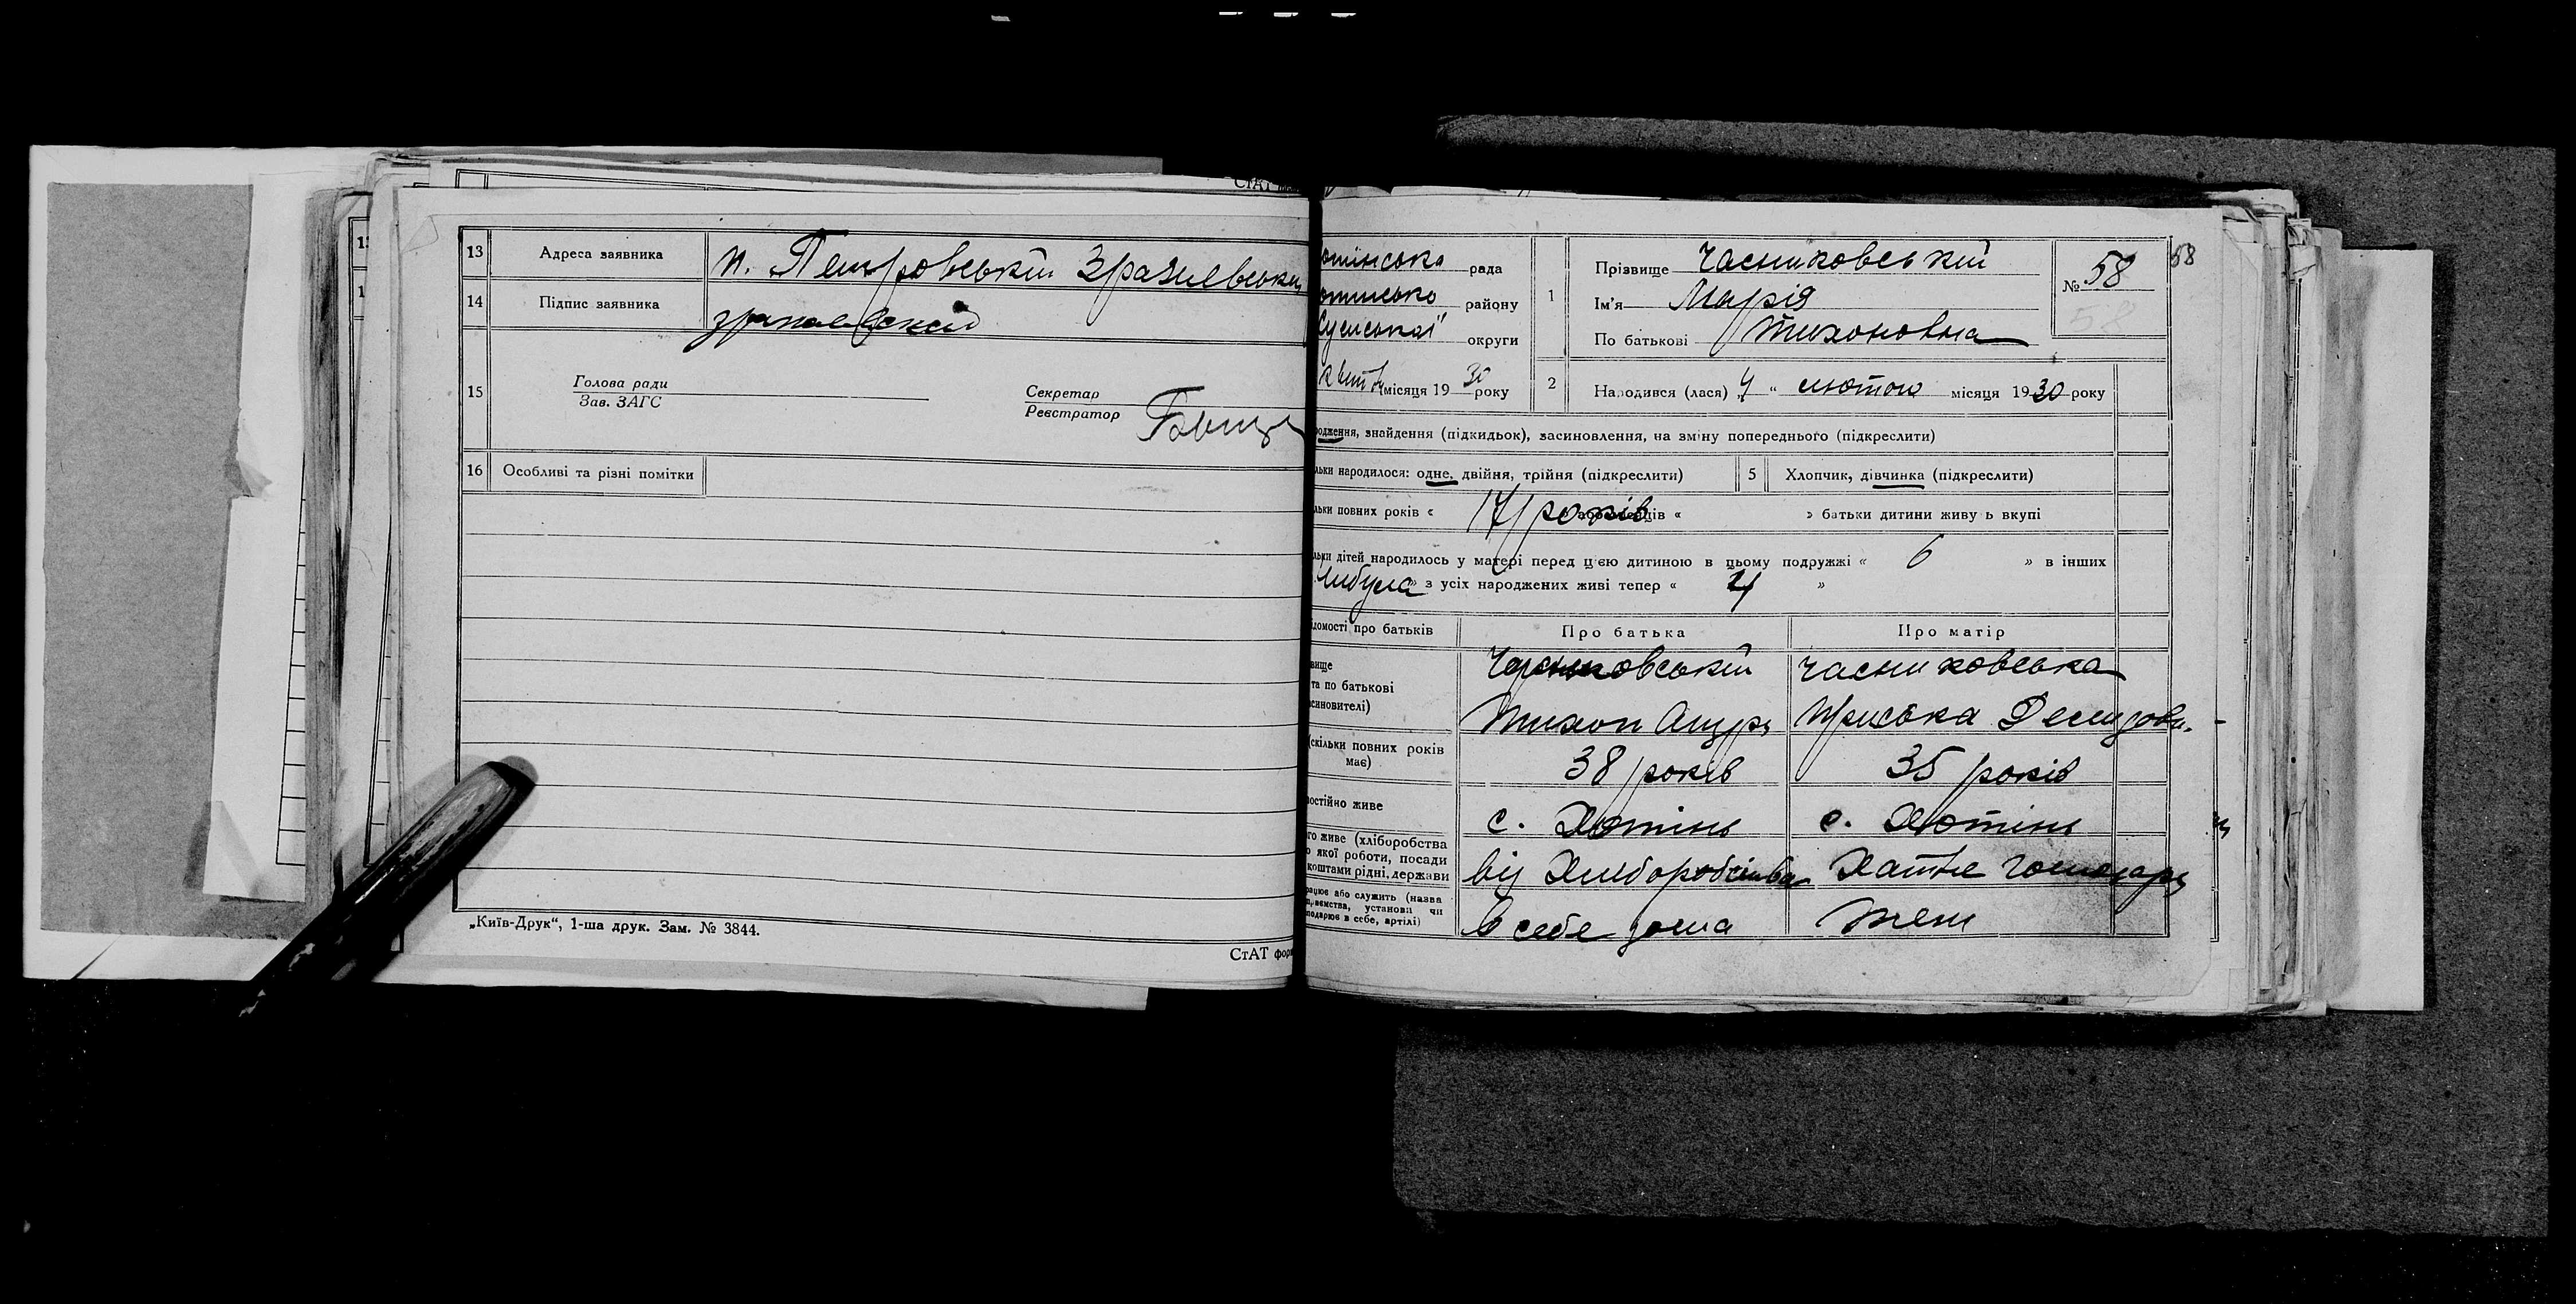 СтАТ
13 Адреса заявника п. Петровський
14 Підпис заявника
15 Голова ради
Зав. ЗАГС
Секретар
Реєстратор
16 Особливі та різні помітки
„Київ-Друк“, 1-ша друк. Зам. № 3844.
СтАТ фор
отінська рада
району
Сумської округи
місяця 1930 року
1 Прізвище Часниковський
Ім'я Марія
По батькові Тихоновна
№ 58
58
58
2 Народився (лася) „4 “ лютого місяця 1930 року
одження, знайдення (підкидьок), засиновлення, на зміну попереднього (підкреслити)
льки народилося: одне, двійня, трійня (підкреслити) 5 Хлопчик, дівчинка (підкреслити)
льки повних років « 17 років » батьки дитини живу ь вкупі
льки дітей народилось у матері перед цією дитиною в цьому подружжі « 6 » в інших
» з усіх народжених живі тепер « 4 »
ідомості про батьків Про батька Про матір
вище
та по батькові
синовителі)
Часниковський Часниковська
Тихон Андр Пріська Демидовн.
(скільки повних років має) 38 років 35 років
постійно живе с. Хотінь с. Хотінь
го живе (хліборобства
о якої роботи, посади
коштами рідні, держави
від Хліборобства Хатнє господар
рацює або служить (назва
приємства, установи чи
подарює в себе, артілі)
в себе дома теж